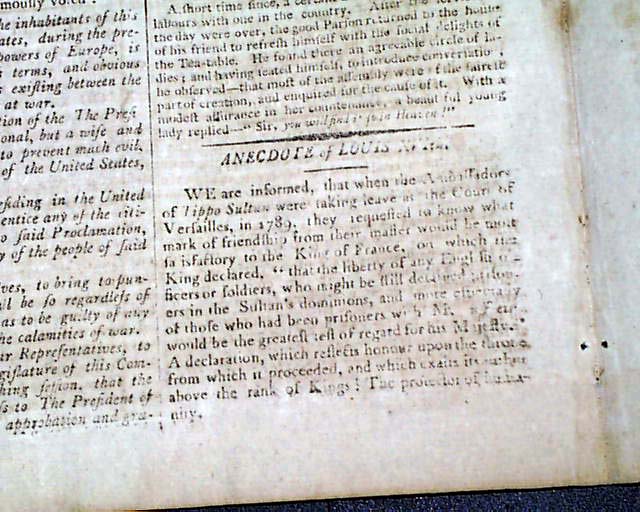 moully voted
the inhabitants of this
ates, during the pre-
powers of Europe, is
s terms, and obvious
s existing between the
at war.
tion of the The Presi
onal, but a wise and
to prevent much evil,
of the United States,
esiding in the United
entice any of the citi-
o said Proclamation,
y of the people of said
ves, to bring to pun-
il be so regardless of
as to be guilty of any
he calamities of war.
ir Representatives, to
gislature of this Com-
hing session, that the
ss to The President of
approbation and gra-
A short time since, a
labours with one in the country. After the
the day were over, the good Parson returned to the house
of his friend to refresh himself with the social delights of
the Tea-table. He found there an agreeable circle of la-
dies; and having seated himself, to introduce conversation,
he observed—that most of the assembly were of the fairest
part of creation, and enquired for the cause of it. With a
modest assurance in her countenance, a beautiful young
lady replied—" Sir, you will find it so in Heaven!"
ANECDOTE of LOUIS
WE are informed, that when the Ambassadors
of Tippo Sultan were taking leave at the Court of
Versailles, in 1789, they requested to know what
mark of friendship from their master would be most
satisfactory to the King of France, on which the
King declared, " that the liberty of any English of-
ficers or soldiers, who might be still detained prison-
ers in the Sultan's dominions, and more especially
of those who had been prisoners with M.
would be the greatest test of regard for his Majesty."
A declaration, which reflects honour upon the throne
from which it proceeded, and which exalts its author
above the rank of Kings! The protector of huma-
nity.